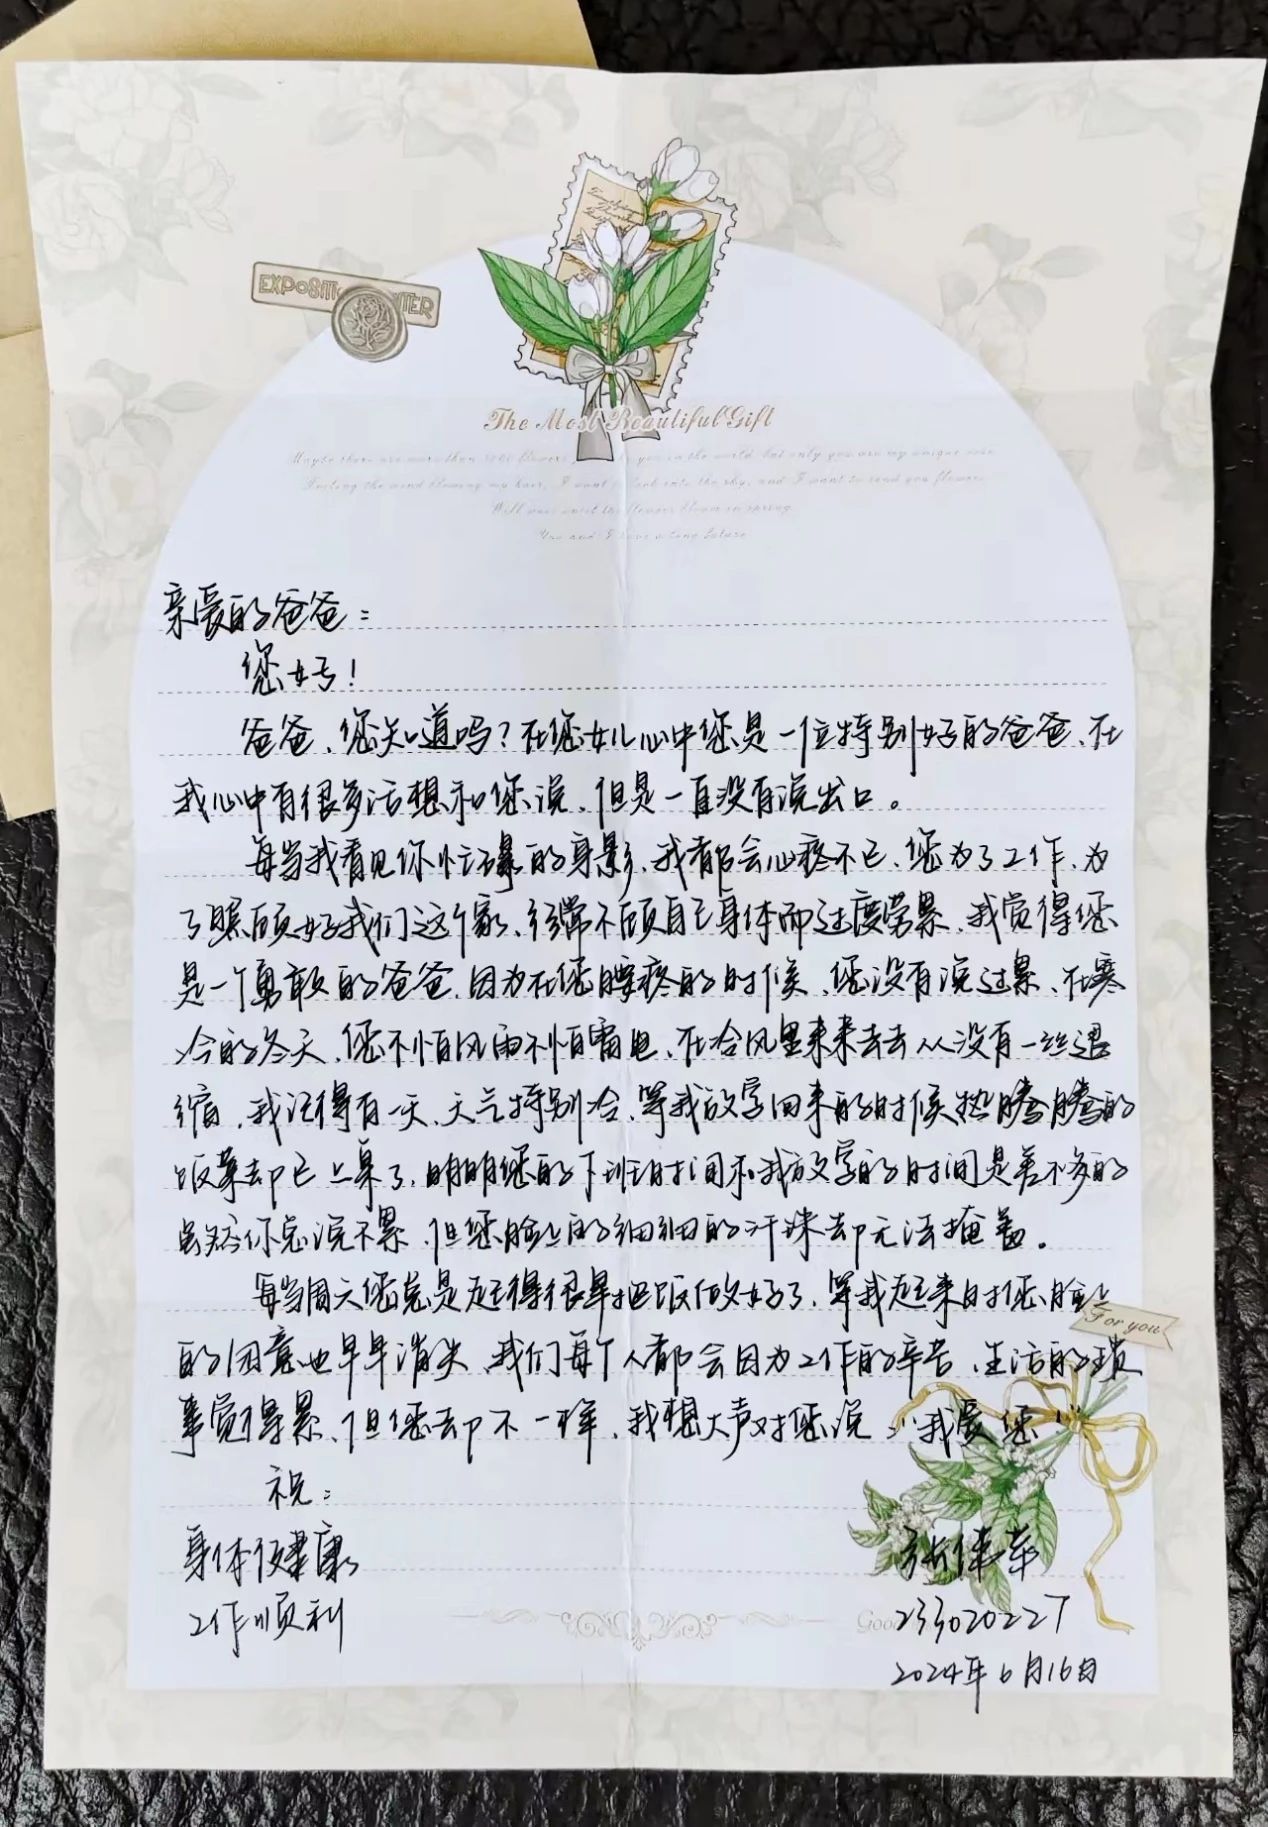 EXPOSITI
TER
The Most Beautiful Gift
Maybe there are more than 5000 flowers you in the world, but only you are my unique rose
Feeling the wind blowing my hair, I want to look into the sky, and I want to send you flowers
Will meet the flowers bloom in spring
You and I have a long future
亲爱的爸爸：
您好！
爸爸、您知道吗？在您女儿心中您是一位特别好的爸爸、在
我心中有很多话想和您说、但是一直没有说出口。
每当我看见你忙碌的身影、我都会心疼不已、您为了工作、为
了照顾好我们这个家、经常不顾自己身体而过度劳累、我觉得您
是一个勇敢的爸爸、因为在您腰疼的时候、您没有说过累、在寒
冷的冬天、您不怕风雨不怕雷电、在冷风里来来去去从没有一丝退
缩、我记得有一天、天气特别冷、等我放学回来的时候热腾腾的
饭菜却已上桌了、明明您的下班时间和我放学的时间是差不多的
虽然你总说不累、但您脸上的细细的汗珠却无法掩盖。
每当周六您总是起得很早把饭做好了、等我起来时您脸上
的困意也早早消失、我们每个人都会因为工作的辛苦、生活的琐
事觉得累、但您却不一样、我想大声对您说：“我爱您！
祝：
身体健康
工作顺利
张倩苹
233020227
2024年6月16日
For you
Good